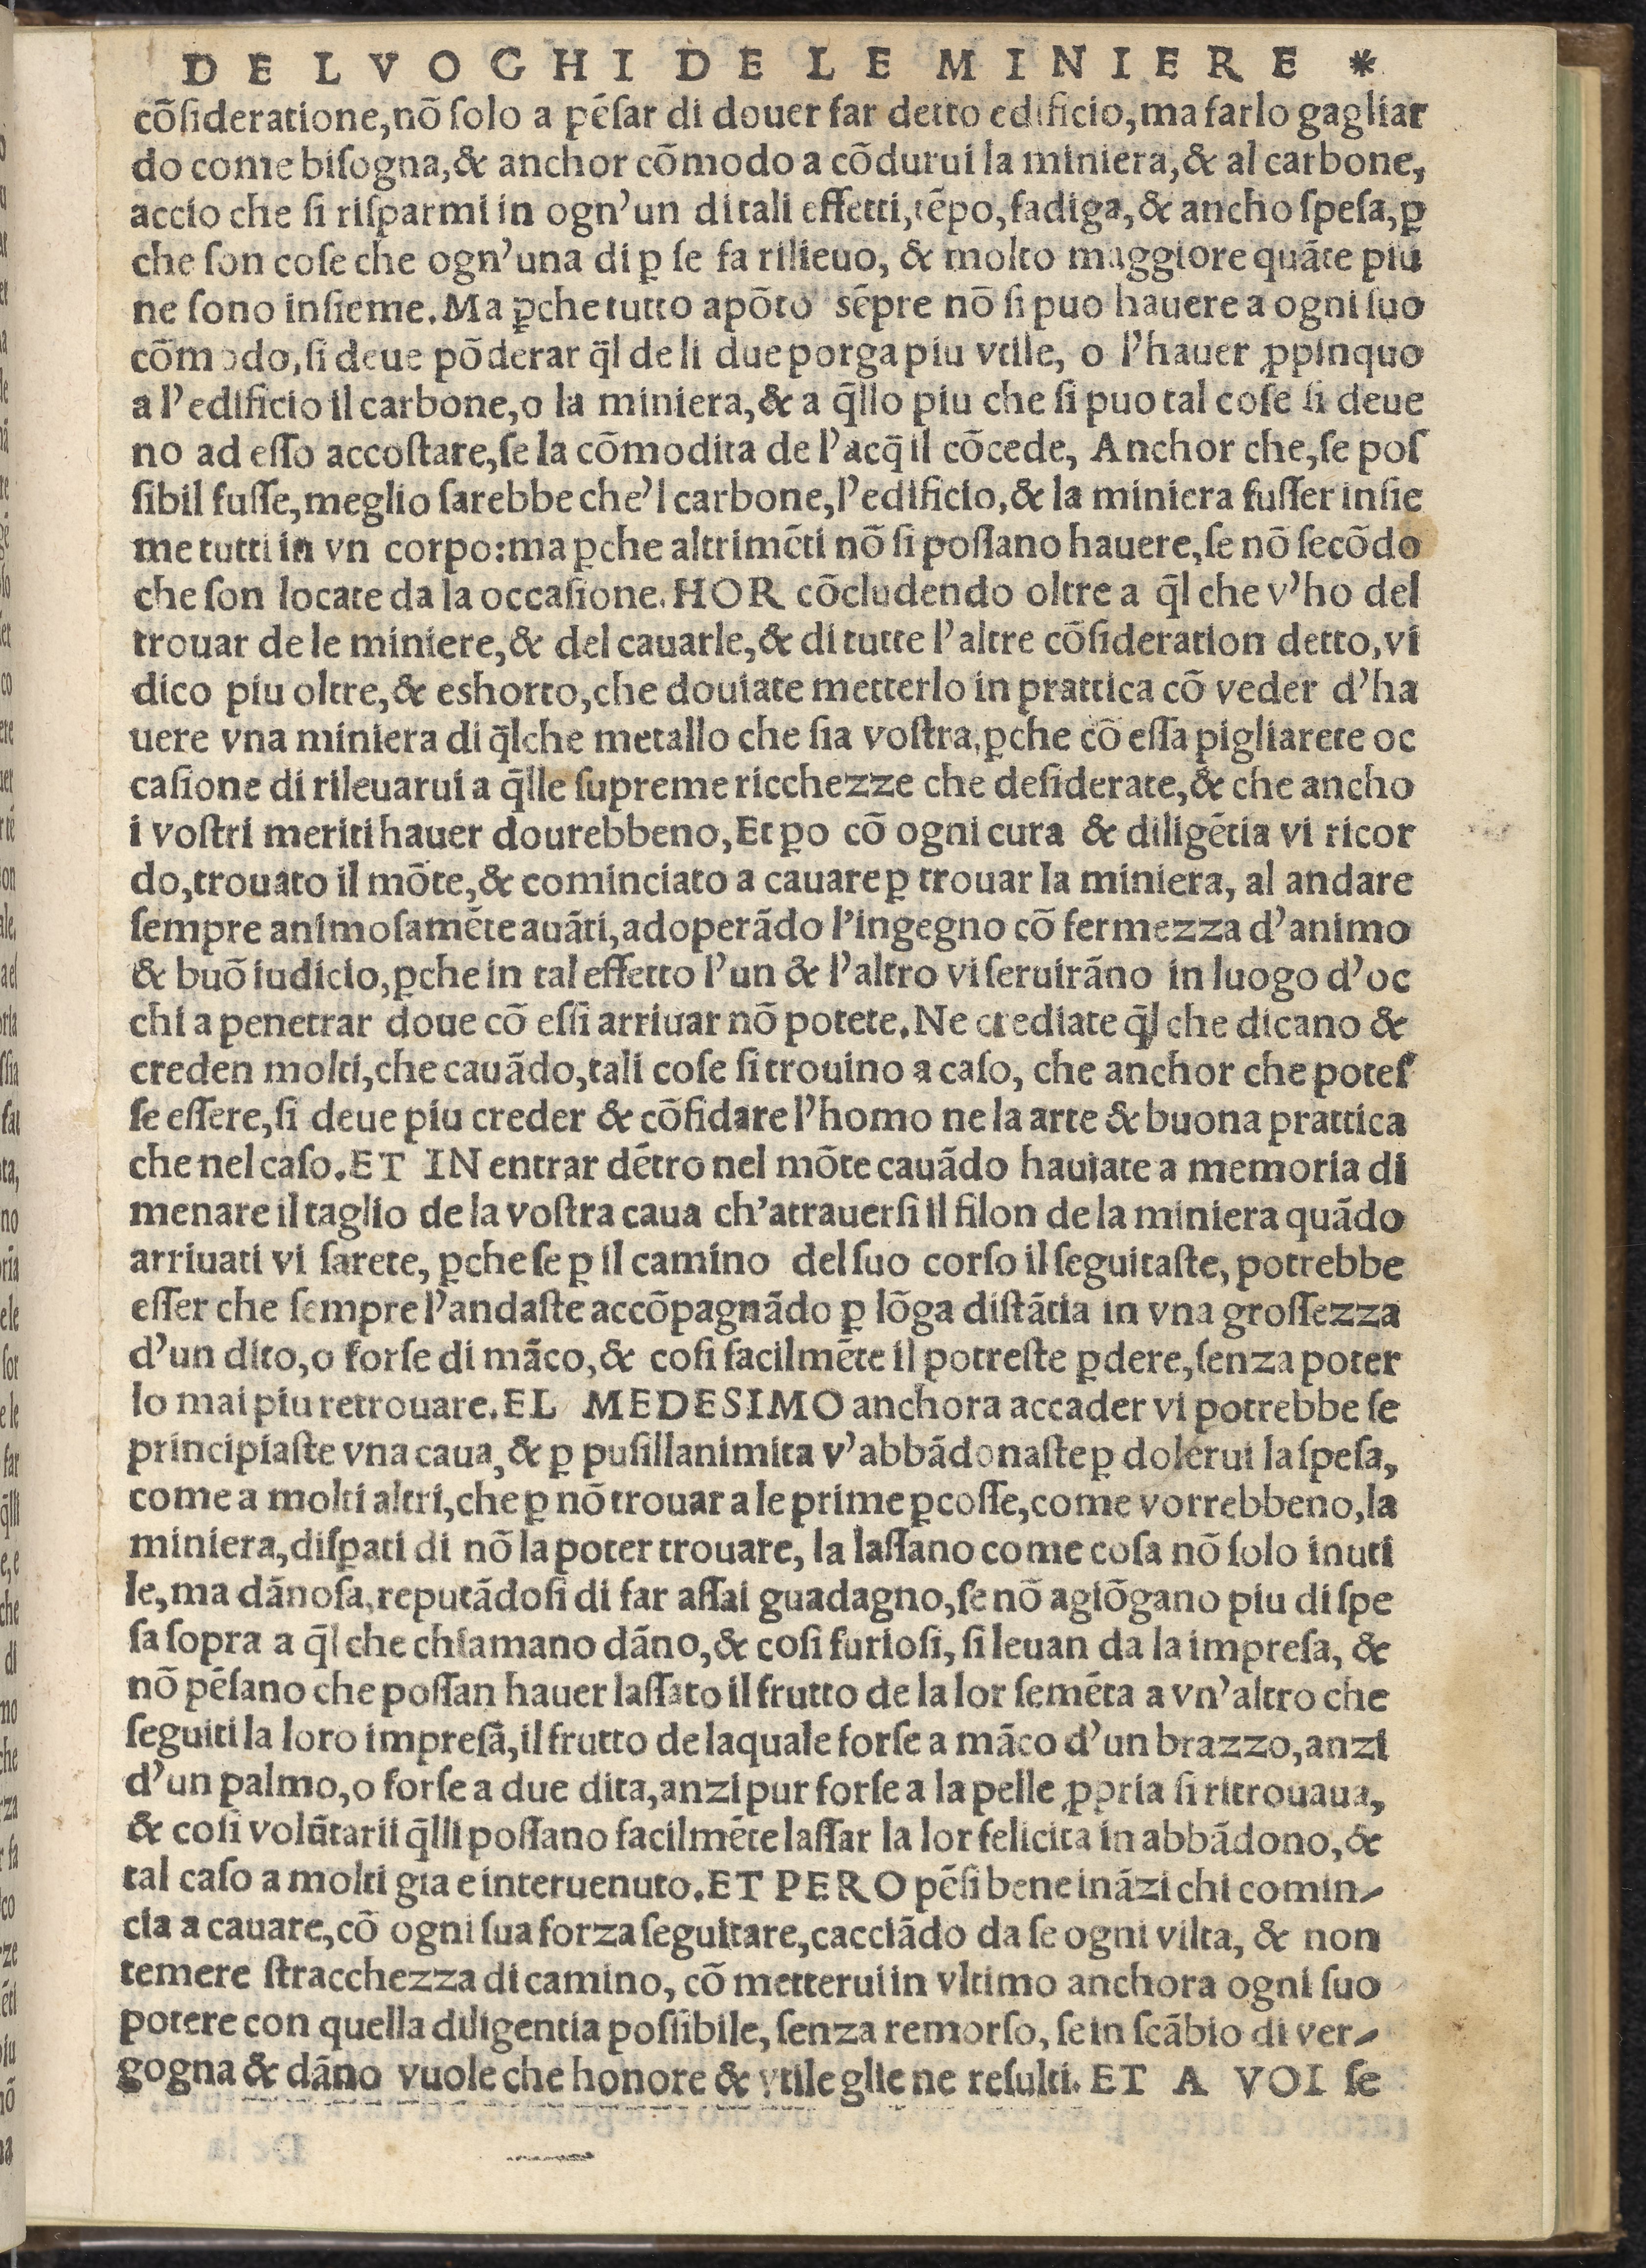 DE LVOGHI DE LE MINIERE *
cõſideratione,nõ ſolo a pẽſar di douer far detto edificio,ma farlo gagliar
do come biſogna,& anchor cõmodo a cõdurui la miniera,& al carbone,
accio che ſi riſparmi in ogn'un di tali effetti,tẽpo,fadiga,& ancho ſpeſa,ꝑ
che ſon coſe che ogn'una di ꝑ ſe fa rilieuo, & molto maggiore quãte piu
ne ſono inſieme.Ma ꝑche tutto apõto sẽpre nõ ſi puo hauere a ogni ſuo
cõmodo,ſi deue põderar q̃l de li due porga piu vtile, o l'hauer ꝓpinquo
a l'edificio il carbone,o la miniera,& a q̃llo piu che ſi puo tal coſe ſi deue
no ad eſſo accoſtare,ſe la cõmodita de l'acq̃ il cõcede, Anchor che,ſe poſ
ſibil fuſſe,meglio ſarebbe che'l carbone,l'edificio,& la miniera fuſſer inſie
me tutti in vn corpo:ma ꝑche altrimẽti nõ ſi poſſano hauere,ſe nõ ſecõdo
che ſon locate da la occaſione.HOR cõcludendo oltre a q̃l che v'ho del
trouar de le miniere,& del cauarle,& di tutte l'altre cõſideration detto,vi
dico piu oltre,& eshorto,che douiate metterlo in prattica cõ veder d'ha
uere vna miniera di q̃lche metallo che ſia voſtra,ꝑche cõ eſſa pigliarete oc
caſione di rileuarui a q̃lle ſupreme ricchezze che deſiderate,& che ancho
i voſtri meriti hauer dourebbeno,Et ꝑo cõ ogni cura & diligẽtia vi ricor
do,trouato il mõte,& cominciato a cauare ꝑ trouar la miniera, al andare
ſempre animoſamẽte auãti,adoperãdo l'ingegno cõ fermezza d'animo
& buõ iudicio,ꝑche in tal effetto l'un & l'altro vi ſeruirãno in luogo d'oc
chi a penetrar doue cõ eſſi arriuar nõ potete.Ne crediate q̃l che dicano &
creden molti,che cauãdo,tali coſe ſi trouino a caſo, che anchor che poteſ
ſe eſſere,ſi deue piu creder & cõfidare l'homo ne la arte & buona prattica
che nel caſo.ET IN entrar dẽtro nel mõte cauãdo hauiate a memoria di
menare il taglio de la voſtra caua ch'atrauerſi il filon de la miniera quãdo
arriuati vi ſarete, ꝑche ſe ꝑ il camino del ſuo corſo il ſeguitaſte, potrebbe
eſſer che ſempre l'andaſte accõpagnãdo ꝑ lõga diſtãtia in vna groſſezza
d'un dito,o forſe di mãco,& coſi facilmẽte il potreſte ꝑdere,ſenza poter
lo mai piu retrouare.EL MEDESIMO anchora accader vi potrebbe ſe
principiaſte vna caua,& ꝑ puſillanimita v'abbãdonaſte ꝑ dolerui la ſpeſa,
come a molti altri,che ꝑ nõ trouar a le prime ꝑcoſſe,come vorrebbeno,la
miniera,diſꝑati di nõ la poter trouare, la laſſano come coſa nõ ſolo inuti
le,ma dãnoſa,reputãdoſi di far aſſai guadagno,ſe nõ agiõgano piu di ſpe
ſa ſopra a q̃l che chiamano dãno,& coſi furioſi, ſi leuan da la impreſa, &
nõ pẽſano che poſſan hauer laſſato il frutto de la lor ſemẽta a vn'altro che
ſeguiti la loro impreſã,il frutto de laquale forſe a mãco d'un brazzo,anzi
d'un palmo,o forſe a due dita,anzi pur forſe a la pelle ꝓpria ſi ritrouaua,
& coſi volũtarii q̃lli poſſano facilmẽte laſſar la lor felicita in abbãdono,&
tal caſo a molti gia e interuenuto.ET PERO pẽſi bene inãzi chi comin-
cia a cauare,cõ ogni ſua forza ſeguitare,cacciãdo da ſe ogni vilta, & non
temere ſtracchezza di camino, cõ metterui in vltimo anchora ogni ſuo
potere con quella diligentia poſſibile, ſenza remorſo, ſe in ſcãbio di ver-
gogna & dãno vuole che honore & vtile glie ne reſulti. ET A VOI ſe